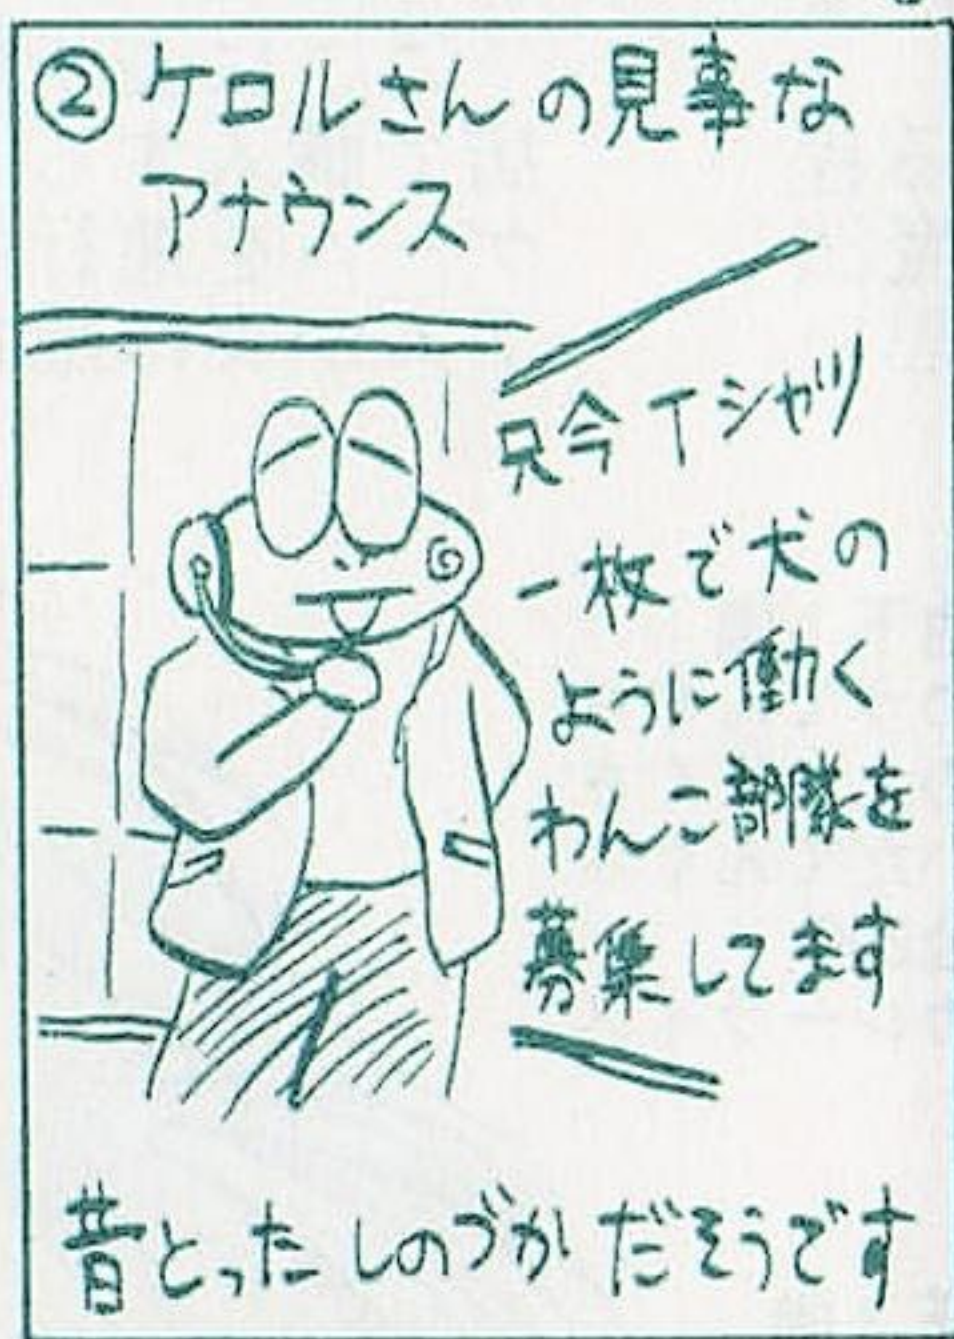 ② ケロルさんの見事な
アナウンス
只今Tシャツ
一枚で犬の
ように働く
わんこ部隊を
募集してます
昔とったしのづかだそうです